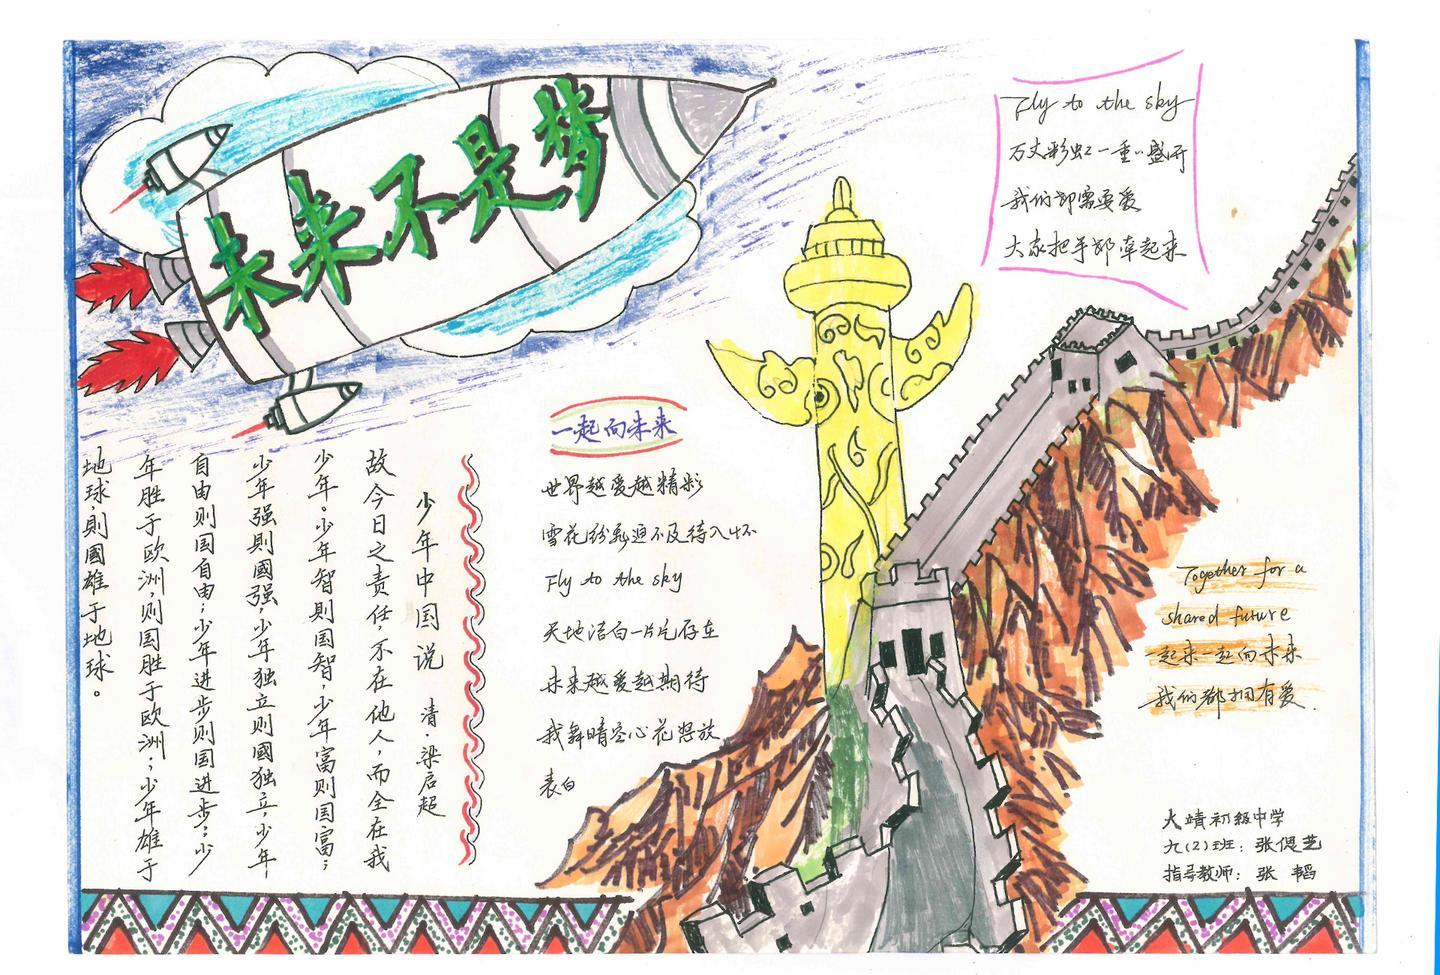 未来不是梦
Fly to the sky
万丈彩虹一重心盛开
我们都需要爱
大家把手都牵起来
一起向未来
世界越爱越精彩
雪花纷飞迫不及待入怀
Fly to the sky
天地洁白一片片存在
未来越爱越期待
我舞晴空心花怒放
表白
少年中国说 清·梁启超
故今日之责任,不在他人,而全在我
少年。少年智則国智,少年富则国富;
少年强則國强,少年独立则國独立,少年
自由则国自由;少年进步则国进步;少
年胜于欧洲,则国胜于欧洲;少年雄于
地球,則國雄于地球。
Together for a
shared future
起来一起向未来
我们都拥有爱
大靖初级中学
九(2)班: 张偲芝
指导教师: 张 韬